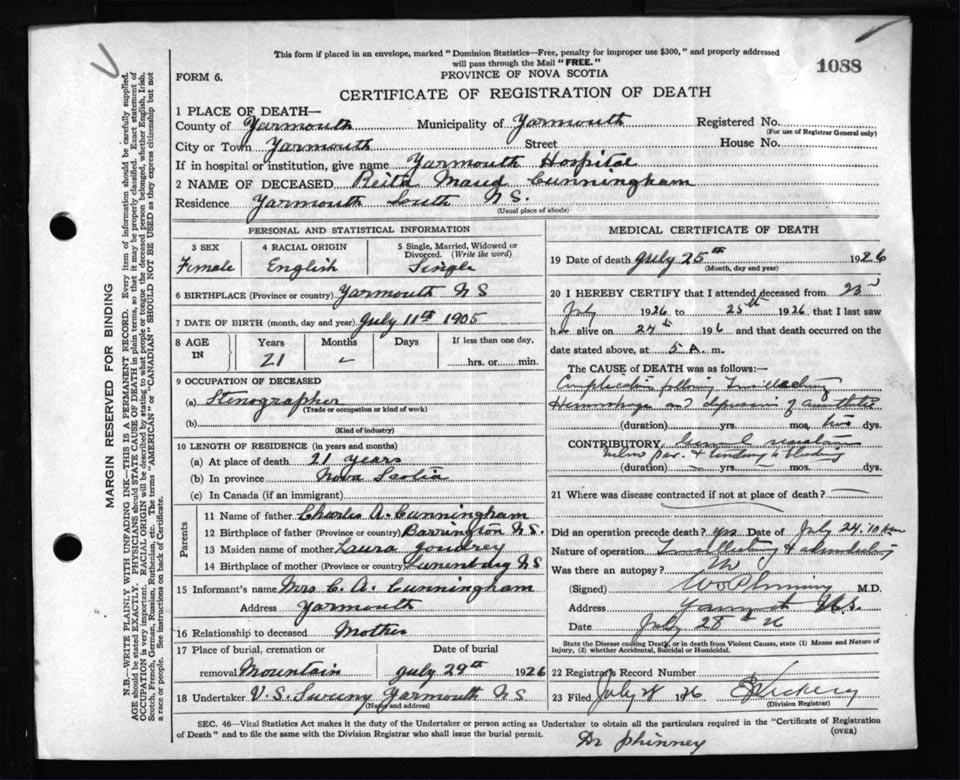 This form if placed in an envelope, marked "Dominion Statistics—Free, penalty for improper use $300," and properly addressed
will pass through the Mail "FREE."
1088
FORM 6.
PROVINCE OF NOVA SCOTIA
CERTIFICATE OF REGISTRATION OF DEATH
MARGIN RESERVED FOR BINDING
N.B.—WRITE PLAINLY WITH UNFADING INK—THIS IS A PERMANENT RECORD. Every item of information should be carefully supplied.
AGE should be stated EXACTLY. PHYSICIANS should STATE CAUSE OF DEATH in plain terms, so that it may be properly classified. Exact statement of
OCCUPATION is very important. RACIAL ORIGIN will be described by stating to what people or tongue the deceased person belonged, whether English, Irish,
Scotch, French, German, Russian, Ruthenian, etc. The terms "AMERICAN" or "CANADIAN" SHOULD NOT BE USED as they express citizenship but not
a race or people. See instructions on back of Certificate.
1 PLACE OF DEATH—
County of Yarmouth Municipality of Yarmouth Registered No.
(For use of Registrar General only)
City or Town Yarmouth Street House No.
If in hospital or institution, give name Yarmouth Hospital
2 NAME OF DECEASED Reita Maud Cunningham
Residence Yarmouth South N.S.
(Usual place of abode)
PERSONAL AND STATISTICAL INFORMATION
3 SEX 4 RACIAL ORIGIN 5 Single, Married, Widowed or
Divorced. (Write the word)
Female English Single
6 BIRTHPLACE (Province or country) Yarmouth N S
7 DATE OF BIRTH (month, day and year) July 11th 1905
8 AGE IN Years Months Days If less than one day,
21 – hrs. or min.
9 OCCUPATION OF DECEASED
(a) Stenographer
(Trade or occupation or kind of work)
(b)
(Kind of industry)
10 LENGTH OF RESIDENCE (in years and months)
(a) At place of death 21 years
(b) In province Nova Scotia
(c) In Canada (if an immigrant)
Parents
11 Name of father Charles A. Cunningham
12 Birthplace of father (Province or country) Barrington N.S.
13 Maiden name of mother Laura Goudrey
14 Birthplace of mother (Province or country) Lunenburg N S
15 Informant's name Mrs C. A. Cunningham
Address Yarmouth
16 Relationship to deceased Mother
17 Place of burial, cremation or Date of burial
removal Mountain July 29th 1926
18 Undertaker V. S. Sweeny Yarmouth N S
(Name and address)
MEDICAL CERTIFICATE OF DEATH
19 Date of death July 25th 1926
(Month, day and year)
20 I HEREBY CERTIFY that I attended deceased from 23rd
July 1926 to 25th 1926 that I last saw
her alive on 24th 1926 and that death occurred on the
date stated above, at 5 A. m.
The CAUSE of DEATH was as follows:—
Complication following Tonsillectomy
Hemorrhage and depression of anesthetic
(duration) yrs. mos. two dys.
CONTRIBUTORY General
& tendency to bleeding
(duration) – yrs. – mos. dys.
21 Where was disease contracted if not at place of death?
Did an operation precede death? yes Date of July 24 10 AM
Nature of operation Tonsillectomy &
Was there an autopsy? No
(Signed) M.D.
Address Yarmouth N.S.
Date July 28th 26
State the Disease causing Death, or in death from Violent Causes, state (1) Means and Nature of
Injury, (2) whether Accidental, Suicidal or Homicidal.
22 Registrar's Record Number
23 Filed July 28 1926
(Division Registrar)
SEC. 46—Vital Statistics Act makes it the duty of the Undertaker or person acting as Undertaker to obtain all the particulars required in the "Certificate of Registration
of Death" and to file the same with the Division Registrar who shall issue the burial permit. (OVER)
Dr Phinney